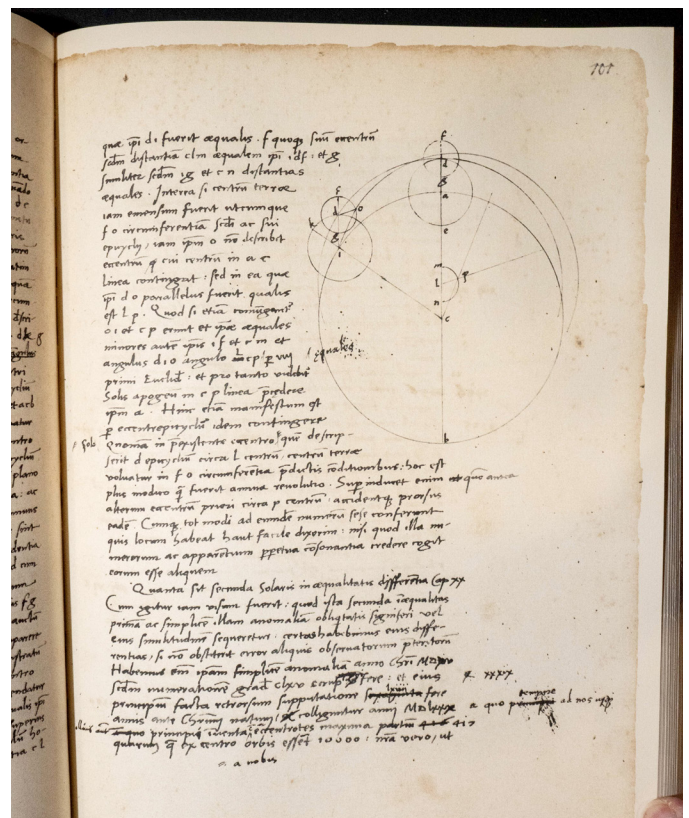 101
quae ipi di fuerit aequalis. f quoq; suũ eccentrũ
scdm distantia clm aequalem ipi idf: et g
similiter scdm ig et c n distantias
aequales. Interea si centrũ terrae
iam emensum fuerit utcumque
f o circumferentia scdi ac sui
epicycli, iam ipm o nõ describit
eccentrũ cui centrũ in a c
linea contingat: sed in ea quae
ipi d o parallelus fuerit qualis
est l p. Quod si etiã coniungantr
o i et c p erunt et ipae aequales
minores autẽ ipis i f et c m et
angulus d i o angulo m̃ c p p viij
/ aequales
primi Euclid: et pro tanto videbit
Solis apogeũ in c p linea p̃cedere
ipm a. Hinc etiã manifestum est
p eccentrepicyclũ idem contingere
/ solo
Quoniã in p̃existente eccentro, quẽ descrip-
serit d epicycliũ circa l centrũ: centrũ terrae
volvatur in f o circumferẽtia p̃dictis cõditionibus: hoc est
plus modico q̃ fuerit annua revolutio. Supinducet enim
alterum eccentrũ priori circa p centrũ: accidentq; prorsus
eadẽ. Cumq; tot modi ad eumdẽ numerũ sese conferant
quis locum habeat haut facile dixerim: nisi quod illa nu-
merorum ac apparentium ppetua cõsonantia credere cogit
eorum esse aliquem
Quanta sit secunda Solaris inaequalitatis differẽtia Cap xx
Cum igitur iam visum fuerit: quod ista secunda inaequalitas
primã ac simplicẽ illam anomaliã obliqtatis signiferi vel
eius similitudinẽ sequeretur: certas habebimus eius diffe-
rentias, si nõ obstiterit error aliquis observatorum pteritorũ
Habemus eni ipam simplicẽ anomaliã anno Chri MDxv
scdm numeratione grad clxv scrup fere: et eius
& xxxix
principiũ facta retrorsum supputatione fere
lxiiii
annis ante Chrm natum, colliguntur anni MDlxxx
a quo tempore ad nos usq;
principiũ inventa eccentrotes maxima partiũ 417
quarum q̃ ex centro orbis esset 10000: nr̃a vero, ut
a nobis